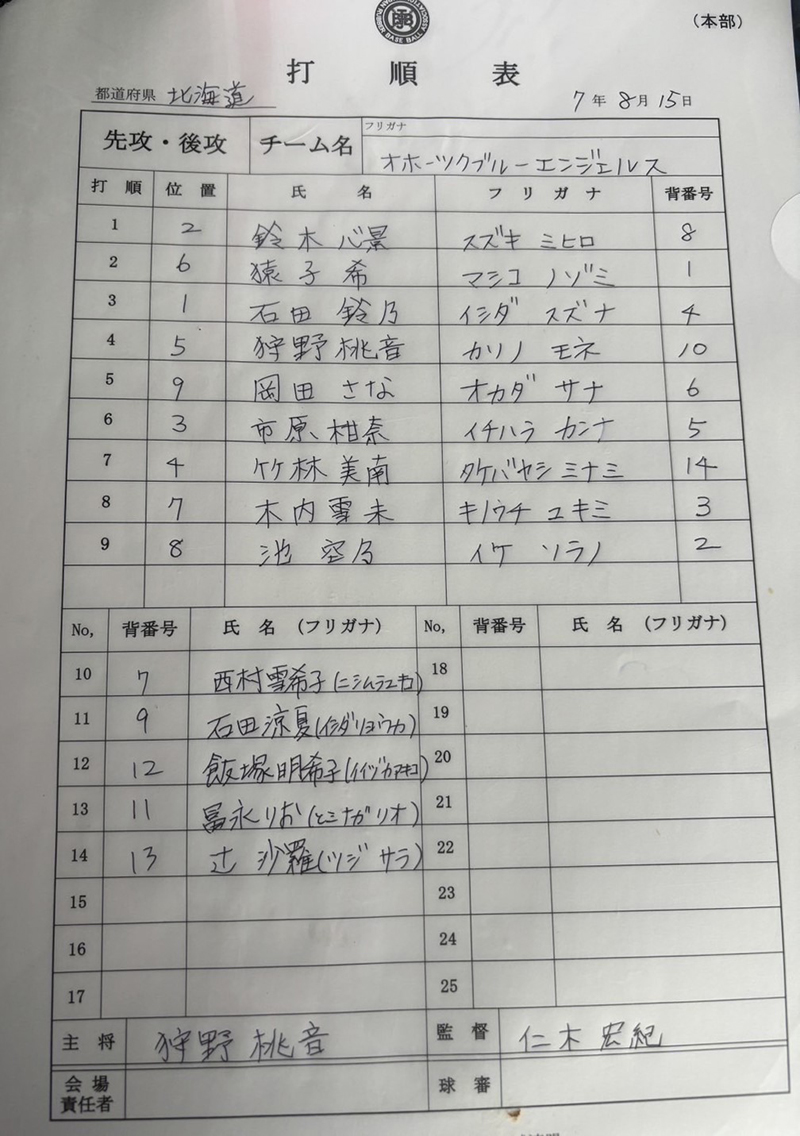 (本部)
打順表
都道府県 北海道 7年8月15日
先攻・後攻 チーム名 フリガナ
オホーツクブルーエンジェルス
打順 位置 氏名 フリガナ 背番号
1 2 鈴木 心景 スズキ ミヒロ 8
2 6 猿子 希 マシコ ノゾミ 1
3 1 石田 鈴乃 イシダ スズナ 4
4 5 狩野 桃音 カリノ モネ 10
5 9 岡田 さな オカダ サナ 6
6 3 市原 柑奈 イチハラ カンナ 5
7 4 竹林 美南 タケバヤシ ミナミ 14
8 7 木内 雪未 キノウチ ユキミ 3
9 8 池 空乃 イケ ソラノ 2
No, 背番号 氏名 (フリガナ) No, 背番号 氏名 (フリガナ)
10 7 西村雪希子(ニシムラユキコ) 18
11 9 石田涼夏(イシダリョウカ) 19
12 12 飯塚明希子(イイヅカアキコ) 20
13 11 冨永りお(とミナガリオ) 21
14 13 辻 沙羅(ツジ サラ) 22
15 23
16 24
17 25
主将 狩野 桃音 監督 仁木 宏紀
会場責任者 球審